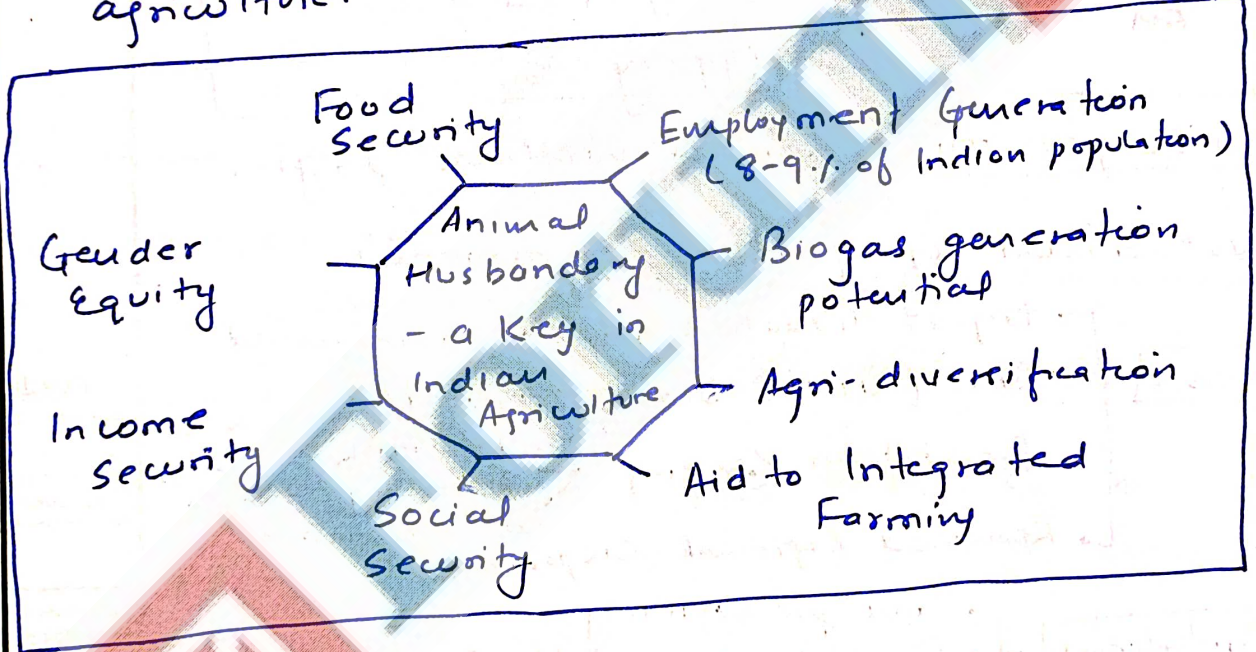 agriculture.
Food
Security
Employment Generation
(8-9% of Indian population)
Animal
Husbandary
- a Key in
Indian
Agriculture
Gender
Equity
Biogas generation
potential
Agri-diversification
Income
Security
Aid to Integrated
Farming
Social
Security
Forum